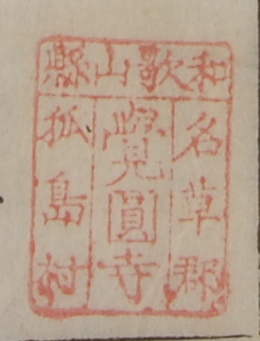 和歌山縣
名草郡
覺圓寺
狐島村